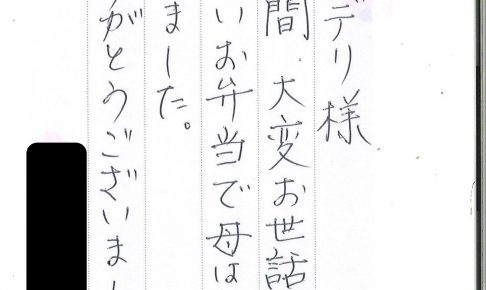 デリ様
間 大変お世話
いお弁当で母は
ました。
がとうございまし